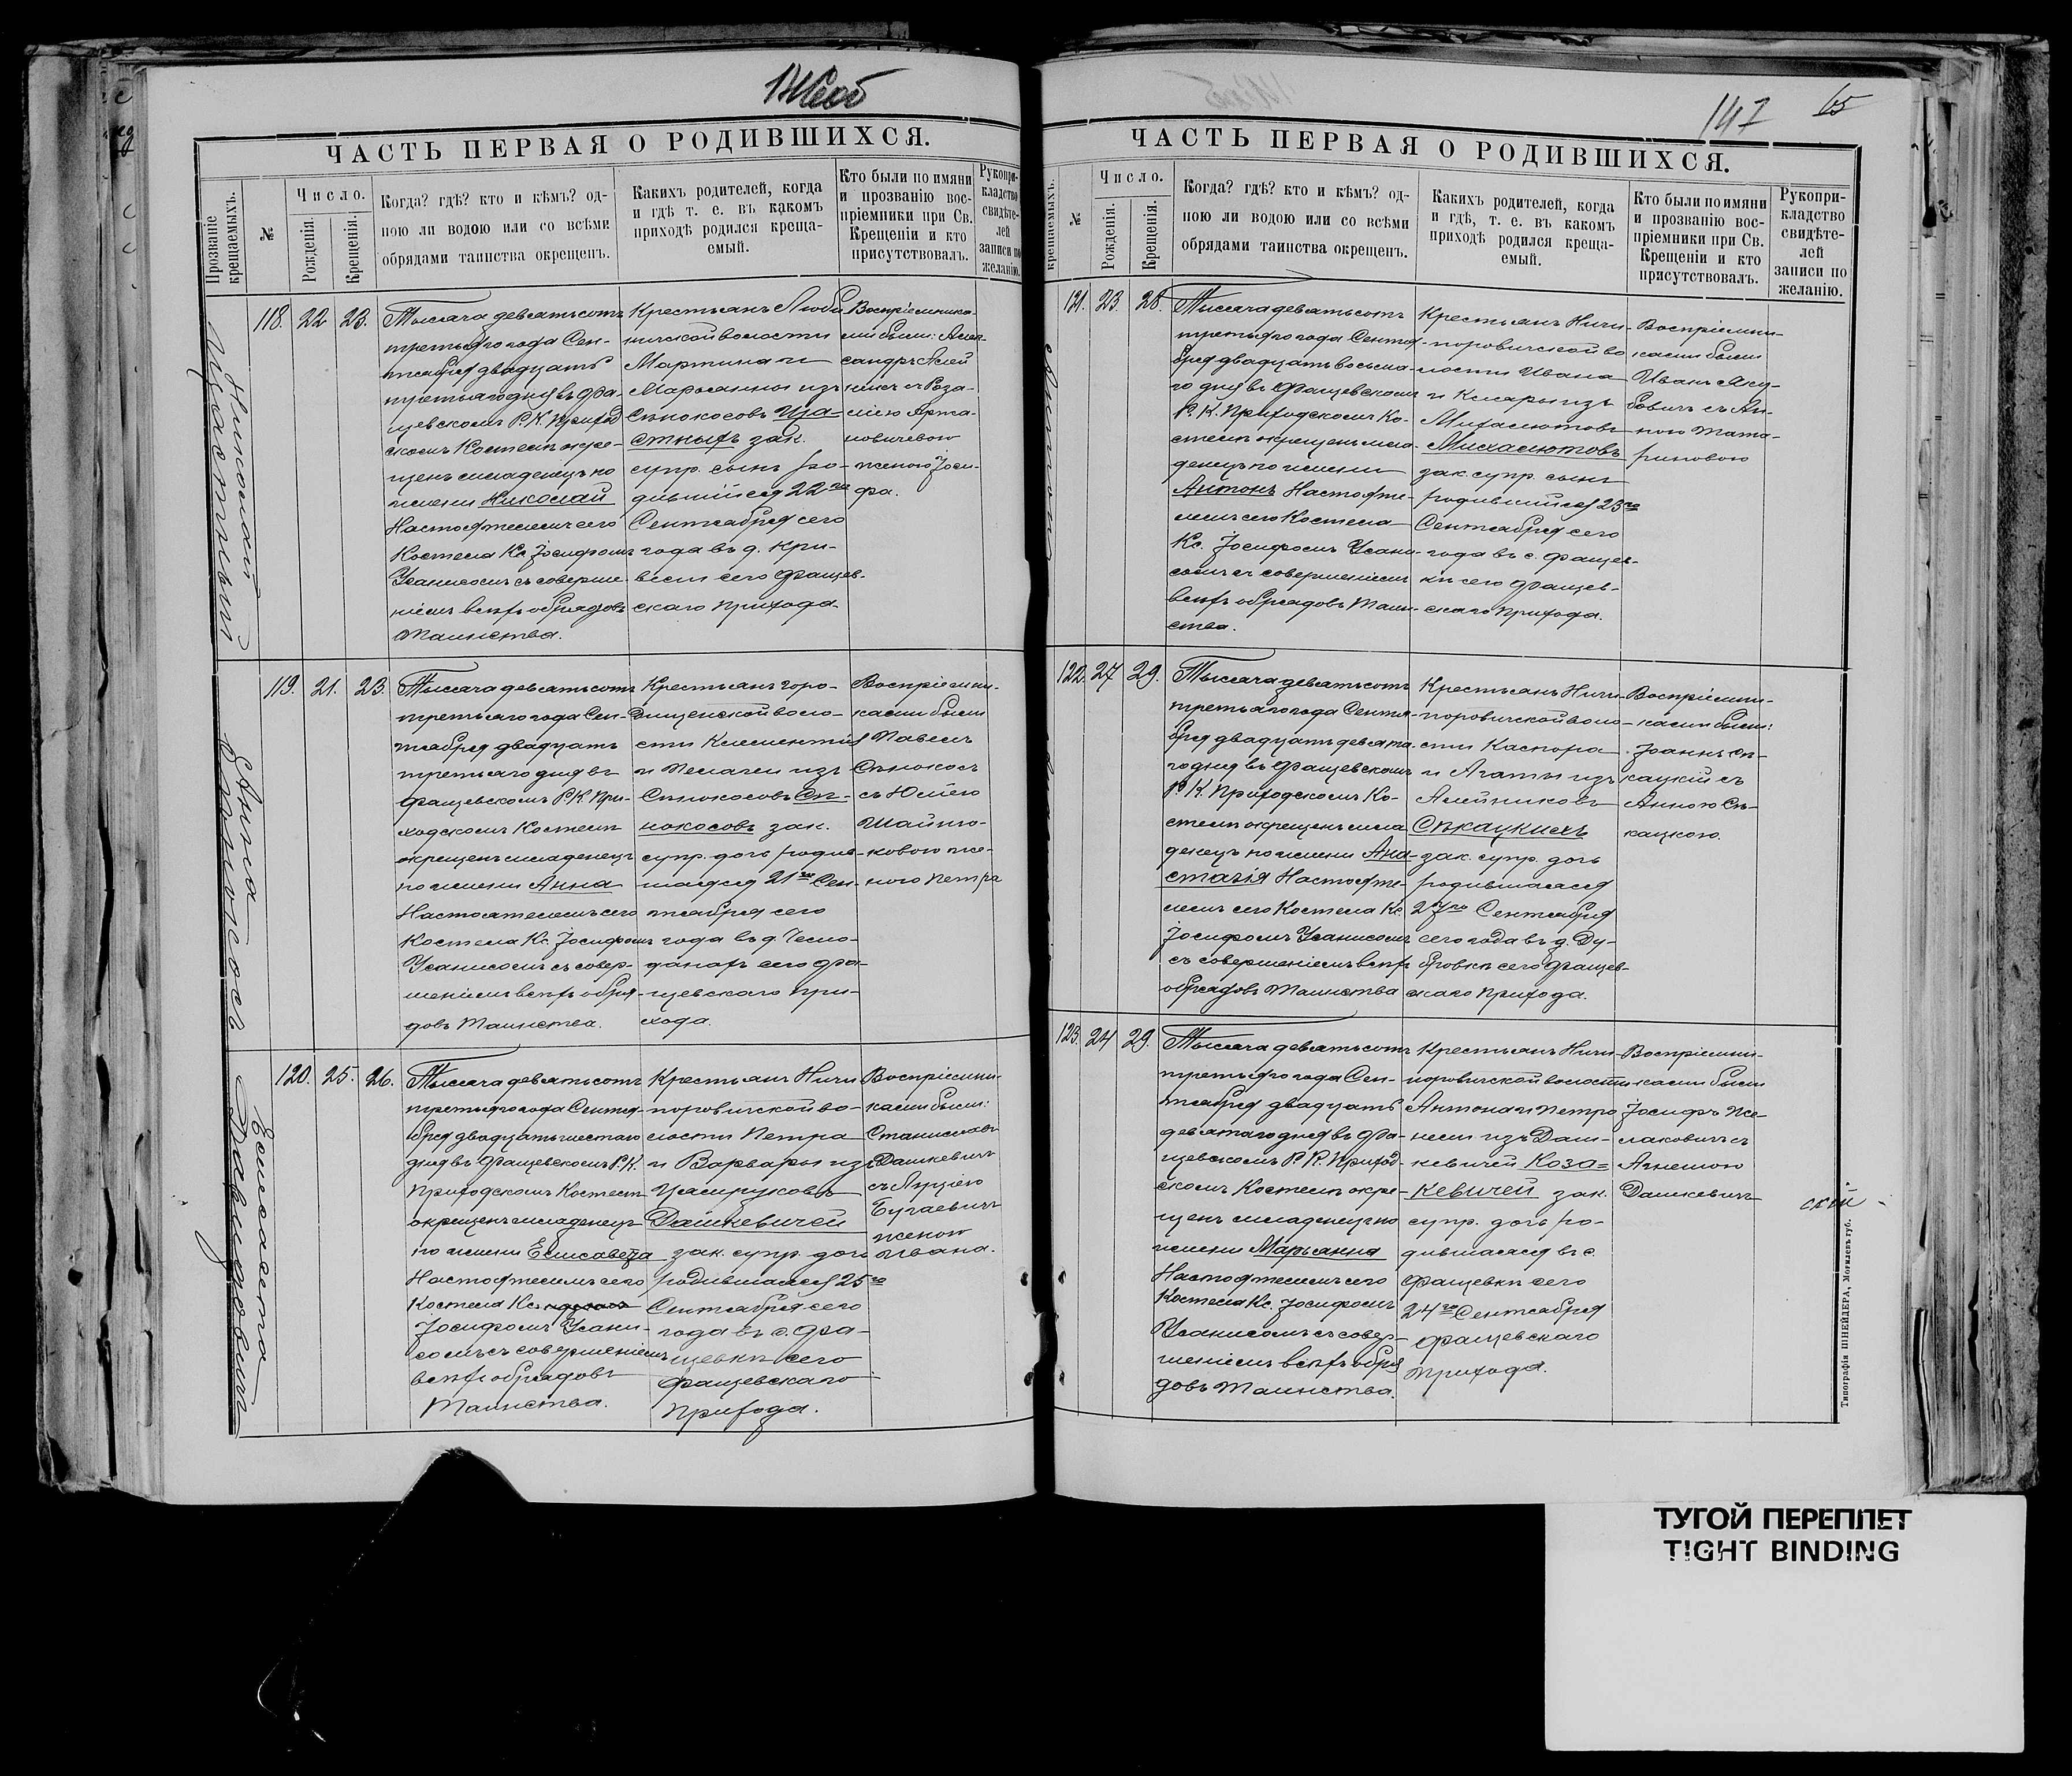 ЧАСТЬ ПЕРВАЯ О РОДИВШИХСЯ.
Прозваніе крещаемыхъ.
№
Число.
Рожденія.
Крещенія.
Когда? гдѣ? кто и кѣмъ? од-
ною ли водою или со всѣми
обрядами таинства окрещенъ.
Какихъ родителей, когда
и гдѣ т. е. въ какомъ
приходѣ родился креща-
емый.
Кто были по имяни
и прозванію вос-
пріемники при Св.
Крещеніи и кто
присутствовалъ.
Рукопри-
кладство
свидѣте-
лей
записи по
желанію.
Николай
118. 22 23.
Тысяча девятьсотъ
третьяго года Сен-
тября двадцать
третьяго дня въ Фа-
щевскомъ Р. К. Приход
скомъ Костелѣ окре-
щенъ младенецъ по
имени Николай
Настоятелемъ сего
Костела Кс. Іосифомъ
съ соверше-
ніемъ всѣхъ обрядовъ
Таинства.
Крестьянъ Люби
нической волости
Мартина и
Марьянны изъ
Сѣнокосовъ Ща=
стныхъ зак.
супр. сынъ ро-
дившійся 22го
Сентября сего
года въ д. Кри-
вели сего Фащев-
скаго Прихода.
Воспріемника-
ми были: Алек-
сандръ
съ Роза-
ліею Арта-
мовичевою
женою Іоси-
фа.
Анна
Сѣнокосъ
119. 21. 23.
Тысяча девятьсотъ
третьяго года Сен-
тября двадцать
третьяго дня въ
Фащевскомъ Р. К. При-
ходскомъ Костелѣ
окрещенъ младенецъ
по имени Анна
Настоятелемъ сего
Костела Кс. Іосифомъ
съ совер-
шеніемъ всѣхъ обря-
довъ Таинства.
Крестьянъ Горо-
дищенской воло-
сти Клементія
и Пелагеи изъ
Сѣнокосовъ Сѣ-
нокосовъ зак.
супр. дочь родив-
шаяся 21го Сен-
тября сего
года въ д.
сего Фа-
щевскаго При-
хода.
Воспріемни-
ками были
Павелъ
Сѣнокосъ
съ Юліею
ковою же-
ною Петра
Елисавета
Дашкевичъ
120. 25. 26.
Тысяча девятьсотъ
третьяго года Сентя-
бря двадцать шестаго
дня въ Фащевскомъ Р. К.
Приходскомъ Костелѣ
окрещенъ младенецъ
по имени Елисавета
Настоятелемъ сего
Костела Кс.
Іосифомъ
съ совершеніемъ
всѣхъ обрядовъ
Таинства.
Крестьянъ Ничи
поровичской во-
лости Петра
и Варвары изъ
Дашкевичей
зак. супр. дочь
родившаяся 25го
Сентября сего
года въ с. Фа-
щевкѣ сего
Фащевскаго
Прихода.
Воспріемни-
ками были:
Станиславъ
Дашкевичъ
съ Луціею
Бугаевичъ
женою
Ивана.
147
65
ЧАСТЬ ПЕРВАЯ О РОДИВШИХСЯ.
крещаемыхъ.
№
Число.
Рожденія.
Крещенія.
Когда? гдѣ? кто и кѣмъ? од-
ною ли водою или со всѣми
обрядами таинства окрещенъ.
Какихъ родителей, когда
и гдѣ, т. е. въ какомъ
приходѣ родился креща-
емый.
Кто были по имяни
и прозванію вос-
пріемники при Св.
Крещеніи и кто
присутствовалъ.
Рукопри-
кладство
свидѣте-
лей
записи по
желанію.
121. 23. 28.
Тысяча девятьсотъ
третьяго года Сентя-
бря двадцать восьма-
го дня въ Фащевскомъ
Р. К. Приходскомъ Ко-
стелѣ окрещенъ мла-
денецъ по имени
Антонъ Настояте-
лемъ сего Костела
Кс. Іосифомъ
съ совершеніемъ
всѣхъ обрядовъ Таин-
ства.
Крестьянъ Ничи-
поровичской во
лости Ивана
и Клары изъ
Михалютовъ
Михалютовъ
зак. супр. сынъ
родившійся 23го
Сентября сего
года въ с. Фащев-
кѣ сего Фащев-
скаго Прихода.
Воспріемни-
ками были
Иванъ Яку-
бовичъ съ Ан-
ною Тата-
риновою
122. 27 29.
Тысяча девятьсотъ
третьяго года Сентя-
бря двадцать девята-
го дня въ Фащевскомъ
Р. К. Приходскомъ Ко-
стелѣ окрещенъ мла
денецъ по имени Ана-
стазія Настояте-
лемъ сего Костела Кс.
Іосифомъ
съ совершеніемъ всѣхъ
обрядовъ Таинства
Крестьянъ Ничи-
поровичской воло-
сти Каспора
и Агаты изъ
Алейниковъ
Сѣкацкихъ
зак. супр. дочь
родившаяся
27го Сентября
сего года въ д. Ду-
бровкѣ сего Фащев-
скаго Прихода.
Воспріемни-
ками были:
Іоаннъ Сѣ-
кацкій съ
Анною Сѣ-
кацкою.
123. 24 29.
Тысяча девятьсотъ
третьяго года Сен-
тября двадцать
девятаго дня въ Фа-
щевскомъ Р. К. Приход-
скомъ Костелѣ окре-
щенъ младенецъ по
имени Марьянна
Настоятелемъ сего
Костела Кс. Іосифомъ
съ совер-
шеніемъ всѣхъ обря
довъ Таинства.
Крестьянъ Ничи-
поровичской волости
Антона и Петро
нели изъ Даш-
кевичей Коза=
кевичей зак.
супр. дочь ро-
дившаяся въ с.
Фащевкѣ сего
24го Сентября
Фащевскаго
Прихода.
Воспріемни-
ками были
Іосифъ Же-
лаковичъ съ
Агнешою
Дашкевичъ
Типографія ШНЕЙДЕРА, Могилевъ губ.
ТУГОЙ ПЕРЕПЛЕТ
TIGHT BINDING